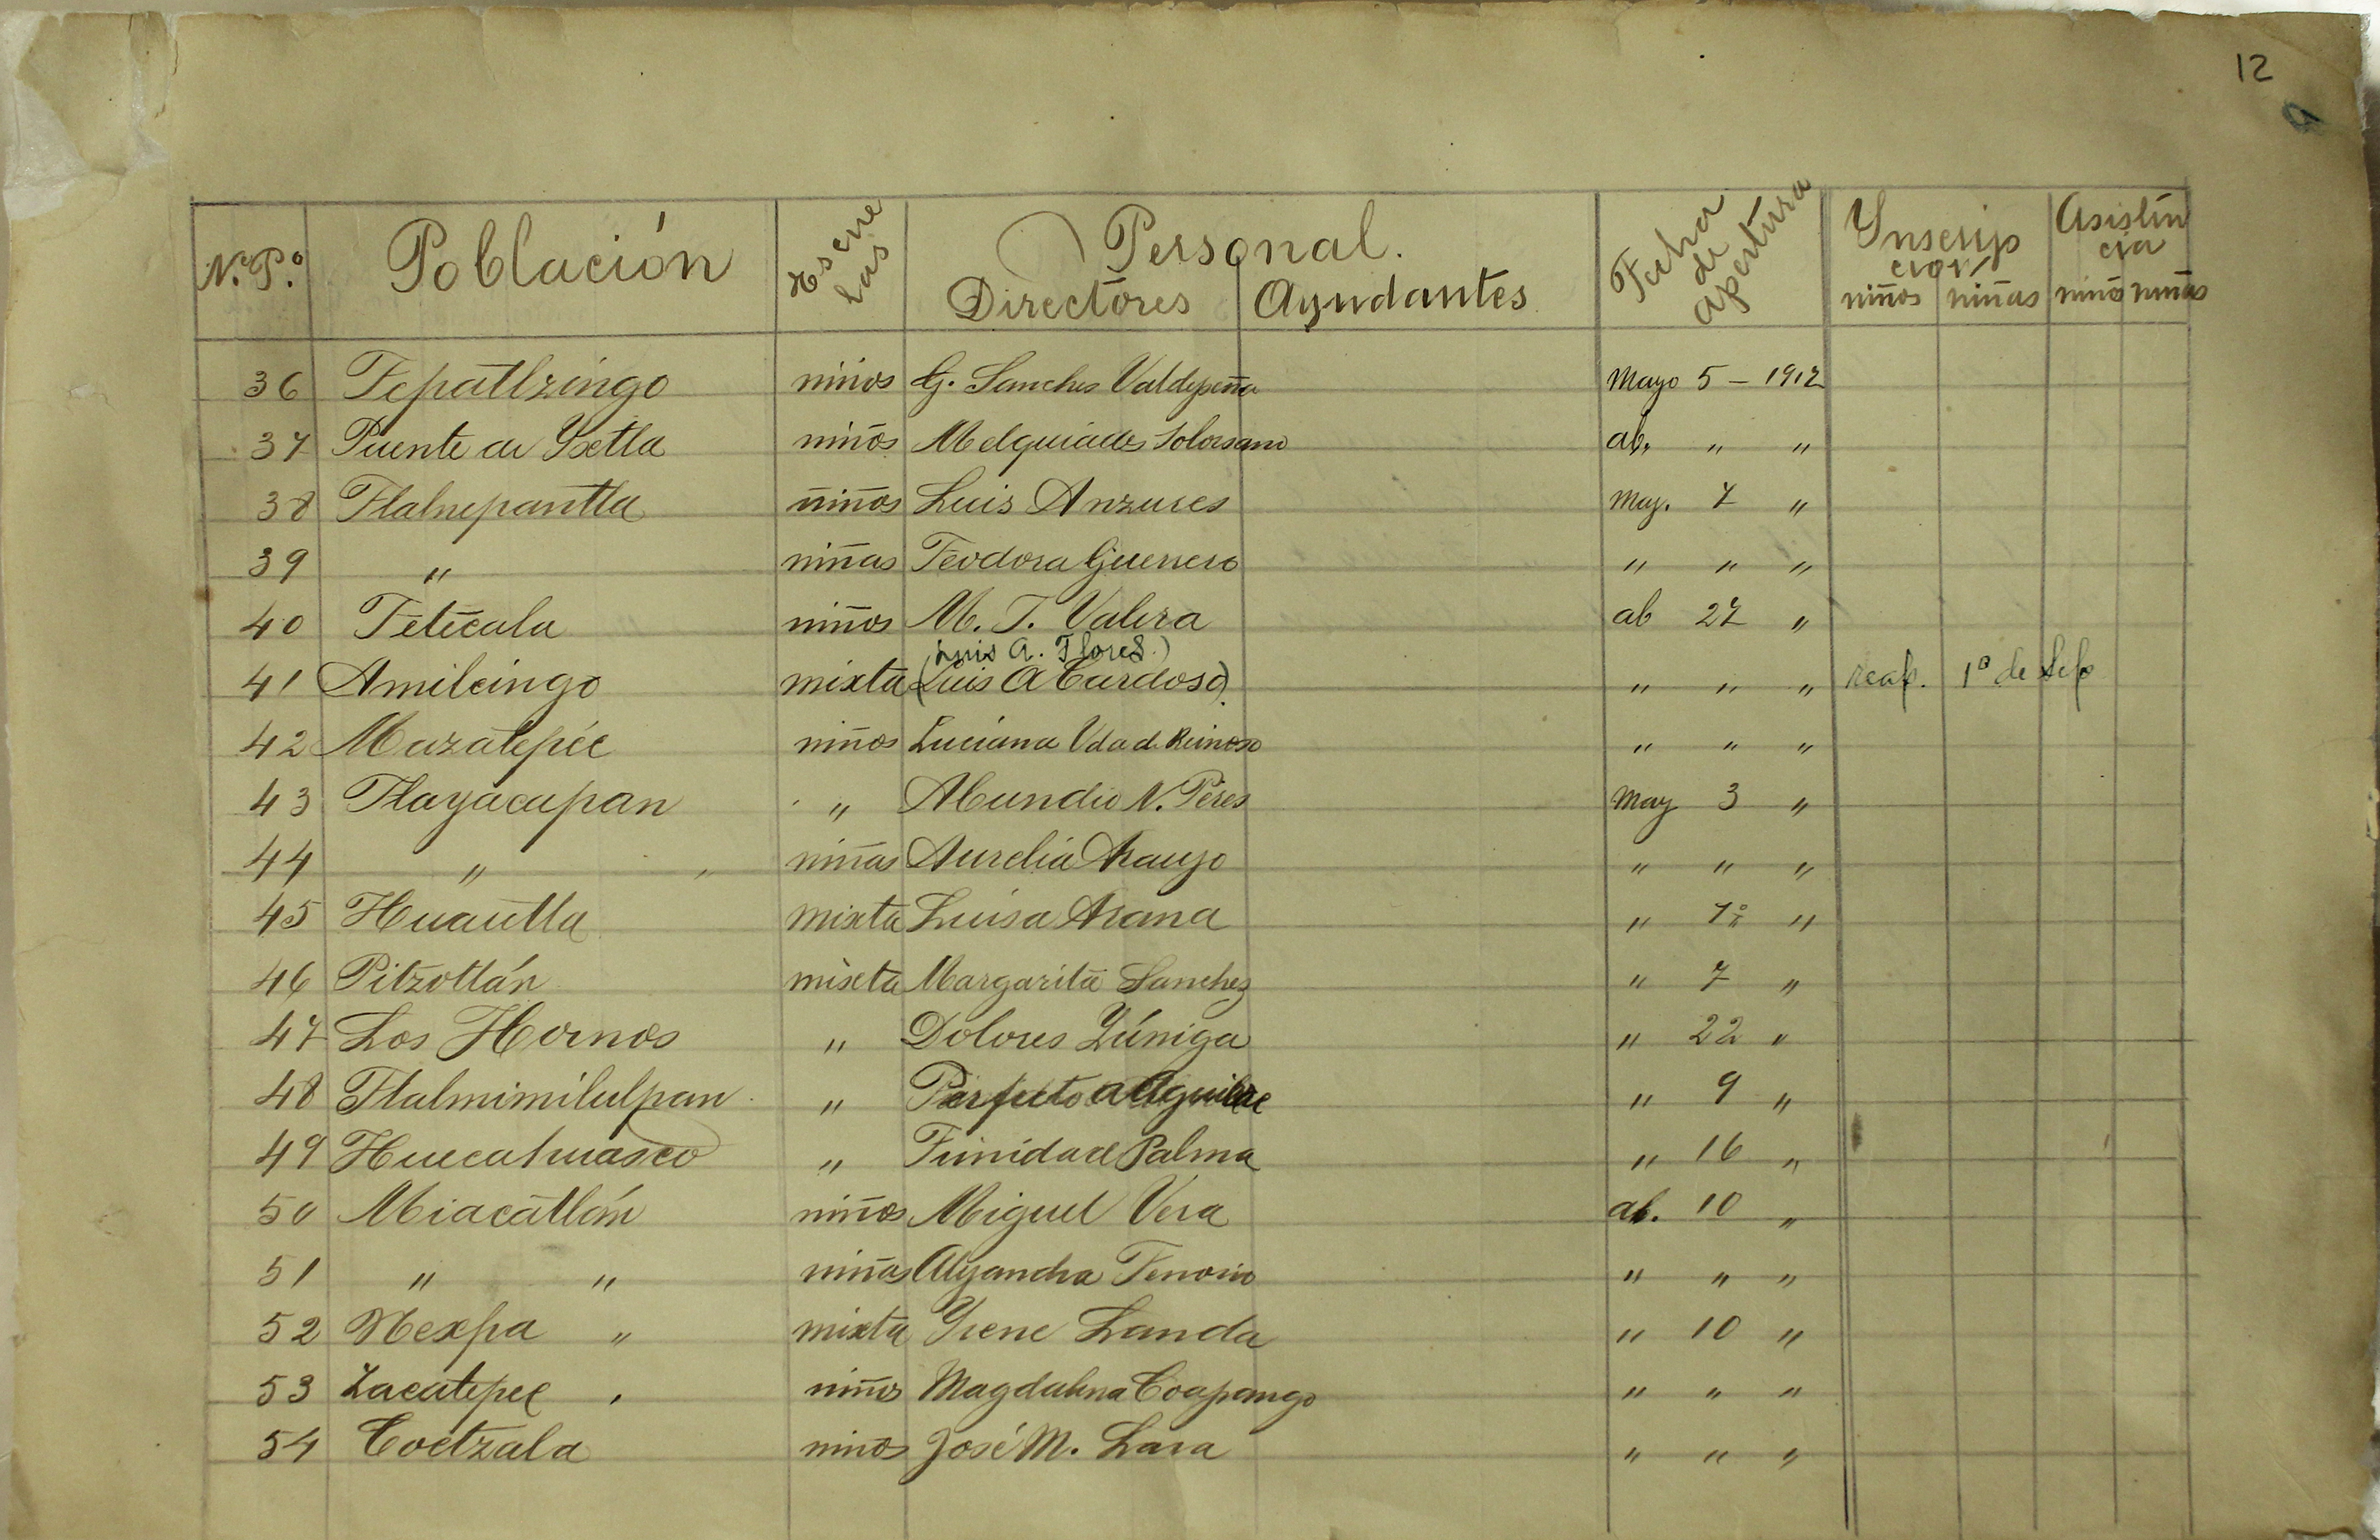 12
N.P.º Población Escue las Personal. Fecha de apertura Ynscrip ción Asisten cia
Directores Ayudantes niños niñas niños niñas
36 Tepaltzingo niños G. Sanches Valdepeña Mayo 5 — 1912
37 Puente de Yxtla niños Melquiades Solorsano ab. " "
38 Tlalnepantla niños Luis Anzures may. 7 "
39 " niñas Teodora Guerrero " " "
40 Tetecala niños M. T. Valera ab 27 "
(Luis A. Flores.)
41 Amilcingo mixta (Luis A Cardoso). " " " reap. 1º de Sep
42 Mazatepéc niños Luciana Vda de Reinoso " " "
43 Tlayacapan " Abundio N. Péres May 3 "
44 " " niñas Aurelia Araujo " " "
45 Huautla mixta Luisa Arana " 1º "
46 Pitzotlán mixta Margarita Sanchez " 7 "
47 Los Hornos " Dolores Zúniga " 22 "
48 Tlalmimilulpan " Perfecto A Aguilar " 9 "
49 Huecahuasco " Trinidad Palma " 16 "
50 Miacatlán niños Miguel Vera ab. 10 "
51 " " niñas Alejandra Tenorio " " "
52 Nexpa " mixta Yrene Landa " 10 "
53 Zacatepec " niños Magdalena Coapango " " "
54 Coetzala niños José M. Lara " " "